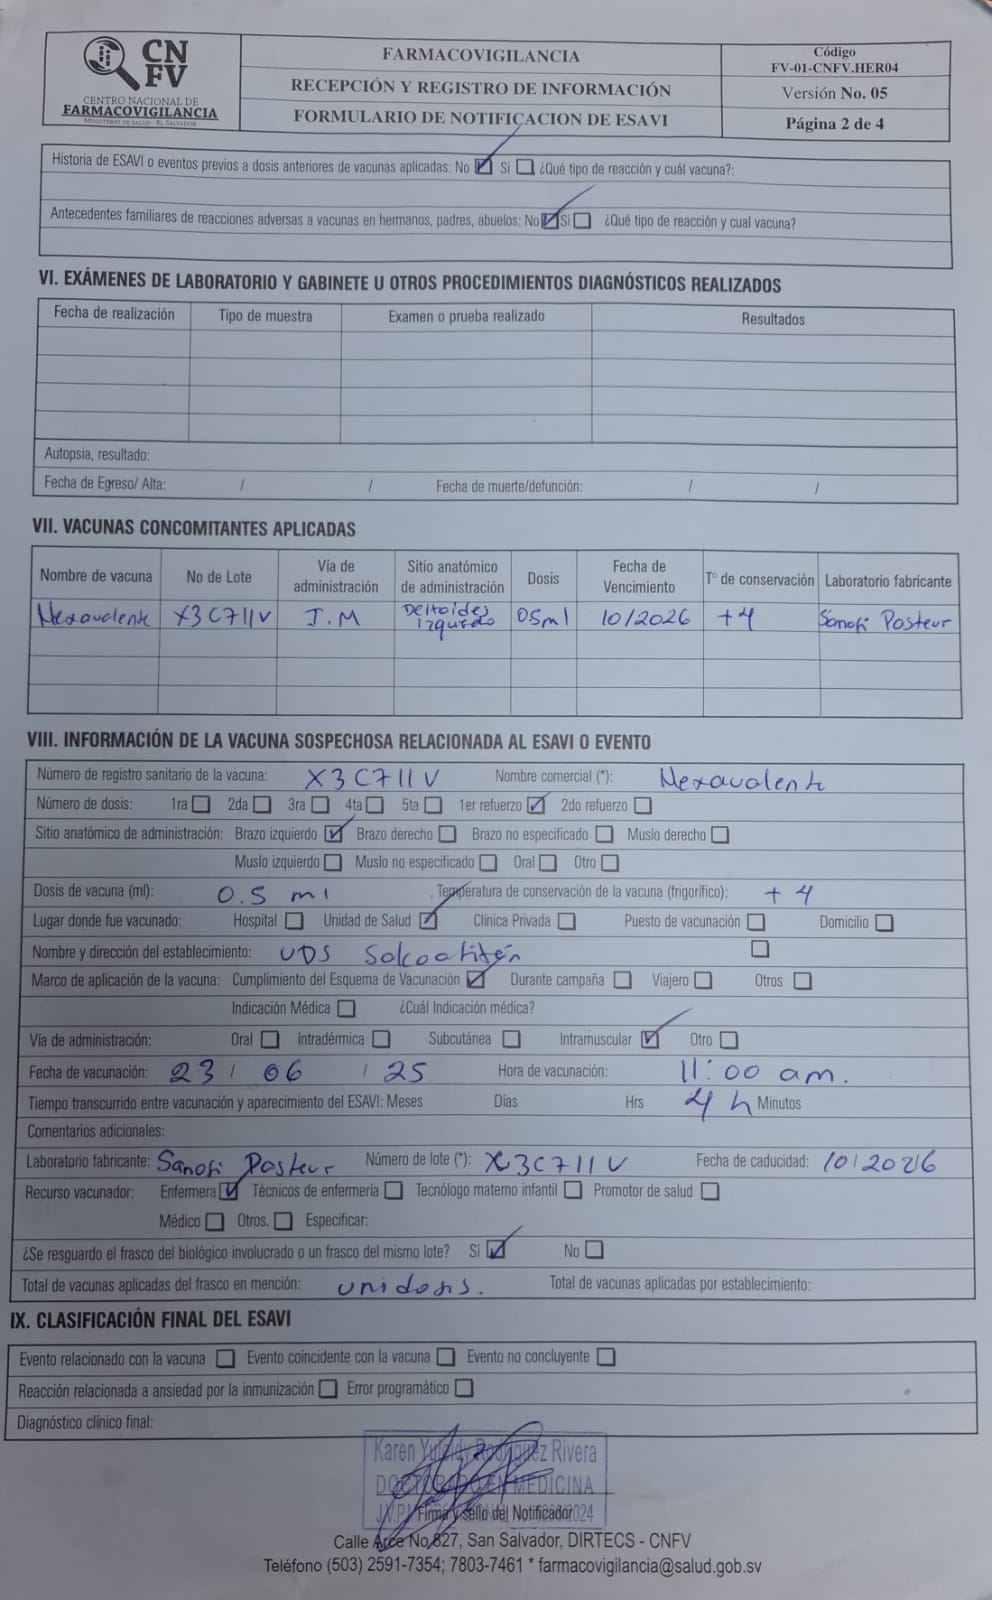 CNFV
CENTRO NACIONAL DE
FARMACOVIGILANCIA
MINISTERIO DE SALUD - EL SALVADOR
FARMACOVIGILANCIA
RECEPCIÓN Y REGISTRO DE INFORMACIÓN
FORMULARIO DE NOTIFICACION DE ESAVI
Código
FV-01-CNFV.HER04
Versión No. 05
Página 2 de 4
Historia de ESAVI o eventos previos a dosis anteriores de vacunas aplicadas: No ☑ Si ☐ ¿Qué tipo de reacción y cuál vacuna?:
Antecedentes familiares de reacciones adversas a vacunas en hermanos, padres, abuelos: No ☑ Si ☐ ¿Qué tipo de reacción y cual vacuna?
VI. EXÁMENES DE LABORATORIO Y GABINETE U OTROS PROCEDIMIENTOS DIAGNÓSTICOS REALIZADOS
Fecha de realización Tipo de muestra Examen o prueba realizado Resultados
Autopsia, resultado:
Fecha de Egreso/ Alta: / / Fecha de muerte/defunción: / /
VII. VACUNAS CONCOMITANTES APLICADAS
Nombre de vacuna No de Lote Vía de administración Sitio anatómico de administración Dosis Fecha de Vencimiento T° de conservación Laboratorio fabricante
Hexavalente X3C711V I.M Deltoides izquerdo 05ml 10/2026 +4 Sanofi Pasteur
VIII. INFORMACIÓN DE LA VACUNA SOSPECHOSA RELACIONADA AL ESAVI O EVENTO
Número de registro sanitario de la vacuna: X3C711V Nombre comercial (*): Hexavalente
Número de dosis: 1ra ☐ 2da ☐ 3ra ☐ 4ta ☐ 5ta ☐ 1er refuerzo ☑ 2do refuerzo ☐
Sitio anatómico de administración: Brazo izquierdo ☑ Brazo derecho ☐ Brazo no especificado ☐ Muslo derecho ☐
Muslo izquierdo ☐ Muslo no especificado ☐ Oral ☐ Otro ☐
Dosis de vacuna (ml): 0.5 ml Temperatura de conservación de la vacuna (frigorífico): +4
Lugar donde fue vacunado: Hospital ☐ Unidad de Salud ☑ Clínica Privada ☐ Puesto de vacunación ☐ Domicilio ☐
Nombre y dirección del establecimiento: UDS Salcoatitán ☐
Marco de aplicación de la vacuna: Cumplimiento del Esquema de Vacunación ☑ Durante campaña ☐ Viajero ☐ Otros ☐
Indicación Médica ☐ ¿Cuál Indicación médica?
Vía de administración: Oral ☐ Intradérmica ☐ Subcutánea ☐ Intramuscular ☑ Otro ☐
Fecha de vacunación: 23 / 06 / 25 Hora de vacunación: 11:00 am.
Tiempo transcurrido entre vacunación y aparecimiento del ESAVI: Meses Días Hrs 4 h Minutos
Comentarios adicionales:
Laboratorio fabricante: Sanofi Pasteur Número de lote (*): X3C711V Fecha de caducidad: 10/2026
Recurso vacunador: Enfermera ☑ Técnicos de enfermería ☐ Tecnólogo materno infantil ☐ Promotor de salud ☐
Médico ☐ Otros. ☐ Especificar:
¿Se resguardo el frasco del biológico involucrado o un frasco del mismo lote? Sí ☑ No ☐
Total de vacunas aplicadas del frasco en mención: unidosis. Total de vacunas aplicadas por establecimiento:
IX. CLASIFICACIÓN FINAL DEL ESAVI
Evento relacionado con la vacuna ☐ Evento coincidente con la vacuna ☐ Evento no concluyente ☐
Reacción relacionada a ansiedad por la inmunización ☐ Error programático ☐
Diagnóstico clínico final:
Karen Rodríguez Rivera
DOCTORADO EN MEDICINA
Firma y sello del Notificador
Calle Arce No,827, San Salvador, DIRTECS - CNFV
Teléfono (503) 2591-7354; 7803-7461 * farmacovigilancia@salud.gob.sv